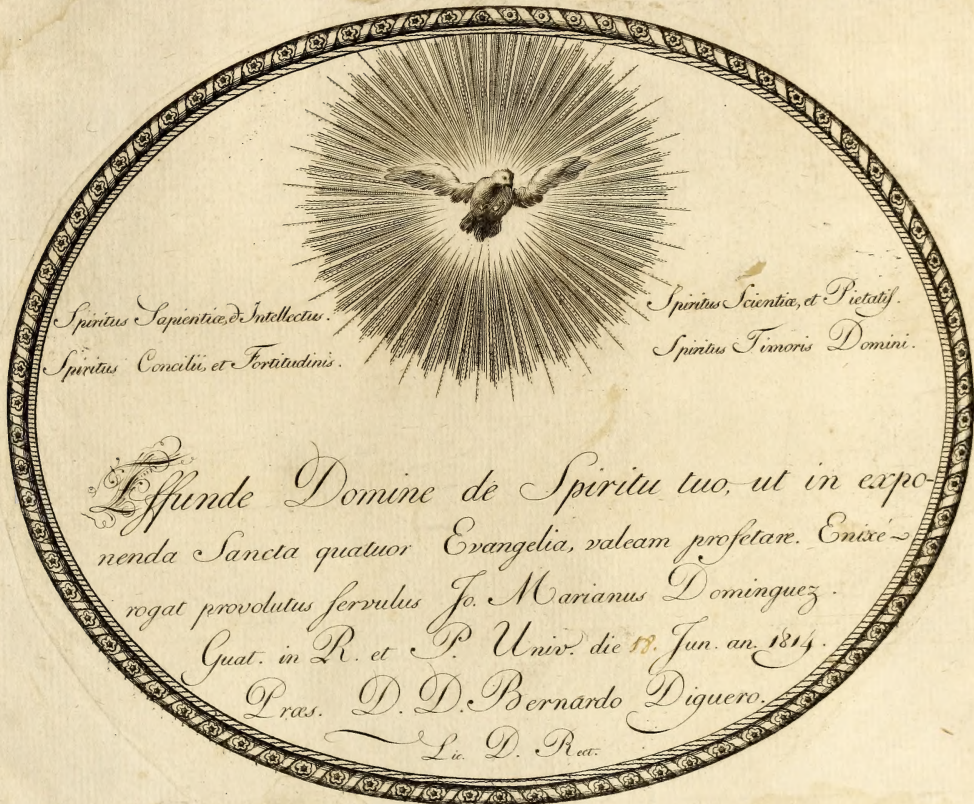 Spiritus Sapientiæ, & Intellectus.
Spiritus Concilii, et Fortitudinis.
Spiritus Scientiæ, et Pietatis.
Spiritus Timoris Domini.
Effunde Domine de Spiritu tuo, ut in expo-
nenda Sancta quatuor Evangelia, valeam profetare. Enixé
rogat provolutus servulus Jo. Marianus Dominguez.
Guat. in R. et P. Univ. die 18. Jun. an. 1814.
Præs. D. D. Bernardo Diguero.
Lic. D. Rect.